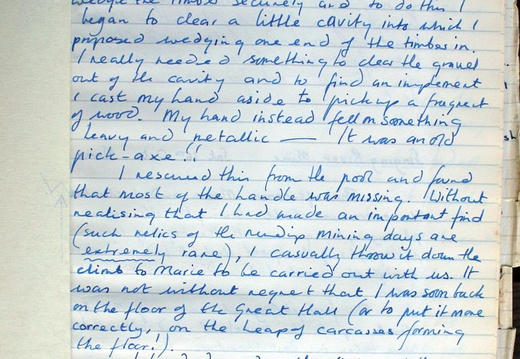 wedge the timber securely and to do this I
began to clear a little cavity into which I
proposed wedging one end of the timber in.
I really needed something to clear the gravel
out of the cavity and to find an implement
I cast my hand aside to pick up a fragment
of wood. My hand instead fell on something
heavy and metallic — It was an old
pick-axe!!
I rescued this from the pool and found
that most of the handle was missing. Without
realising that I had made an important find
(such relics of the Mendip mining days are
extremely rare), I casually threw it down the
climb to Marie to be carried out with us. It
was not without regret that I was soon back
on the floor of the Great Hall (or to put it more
correctly, on the heap of carcasses forming
the floor!).